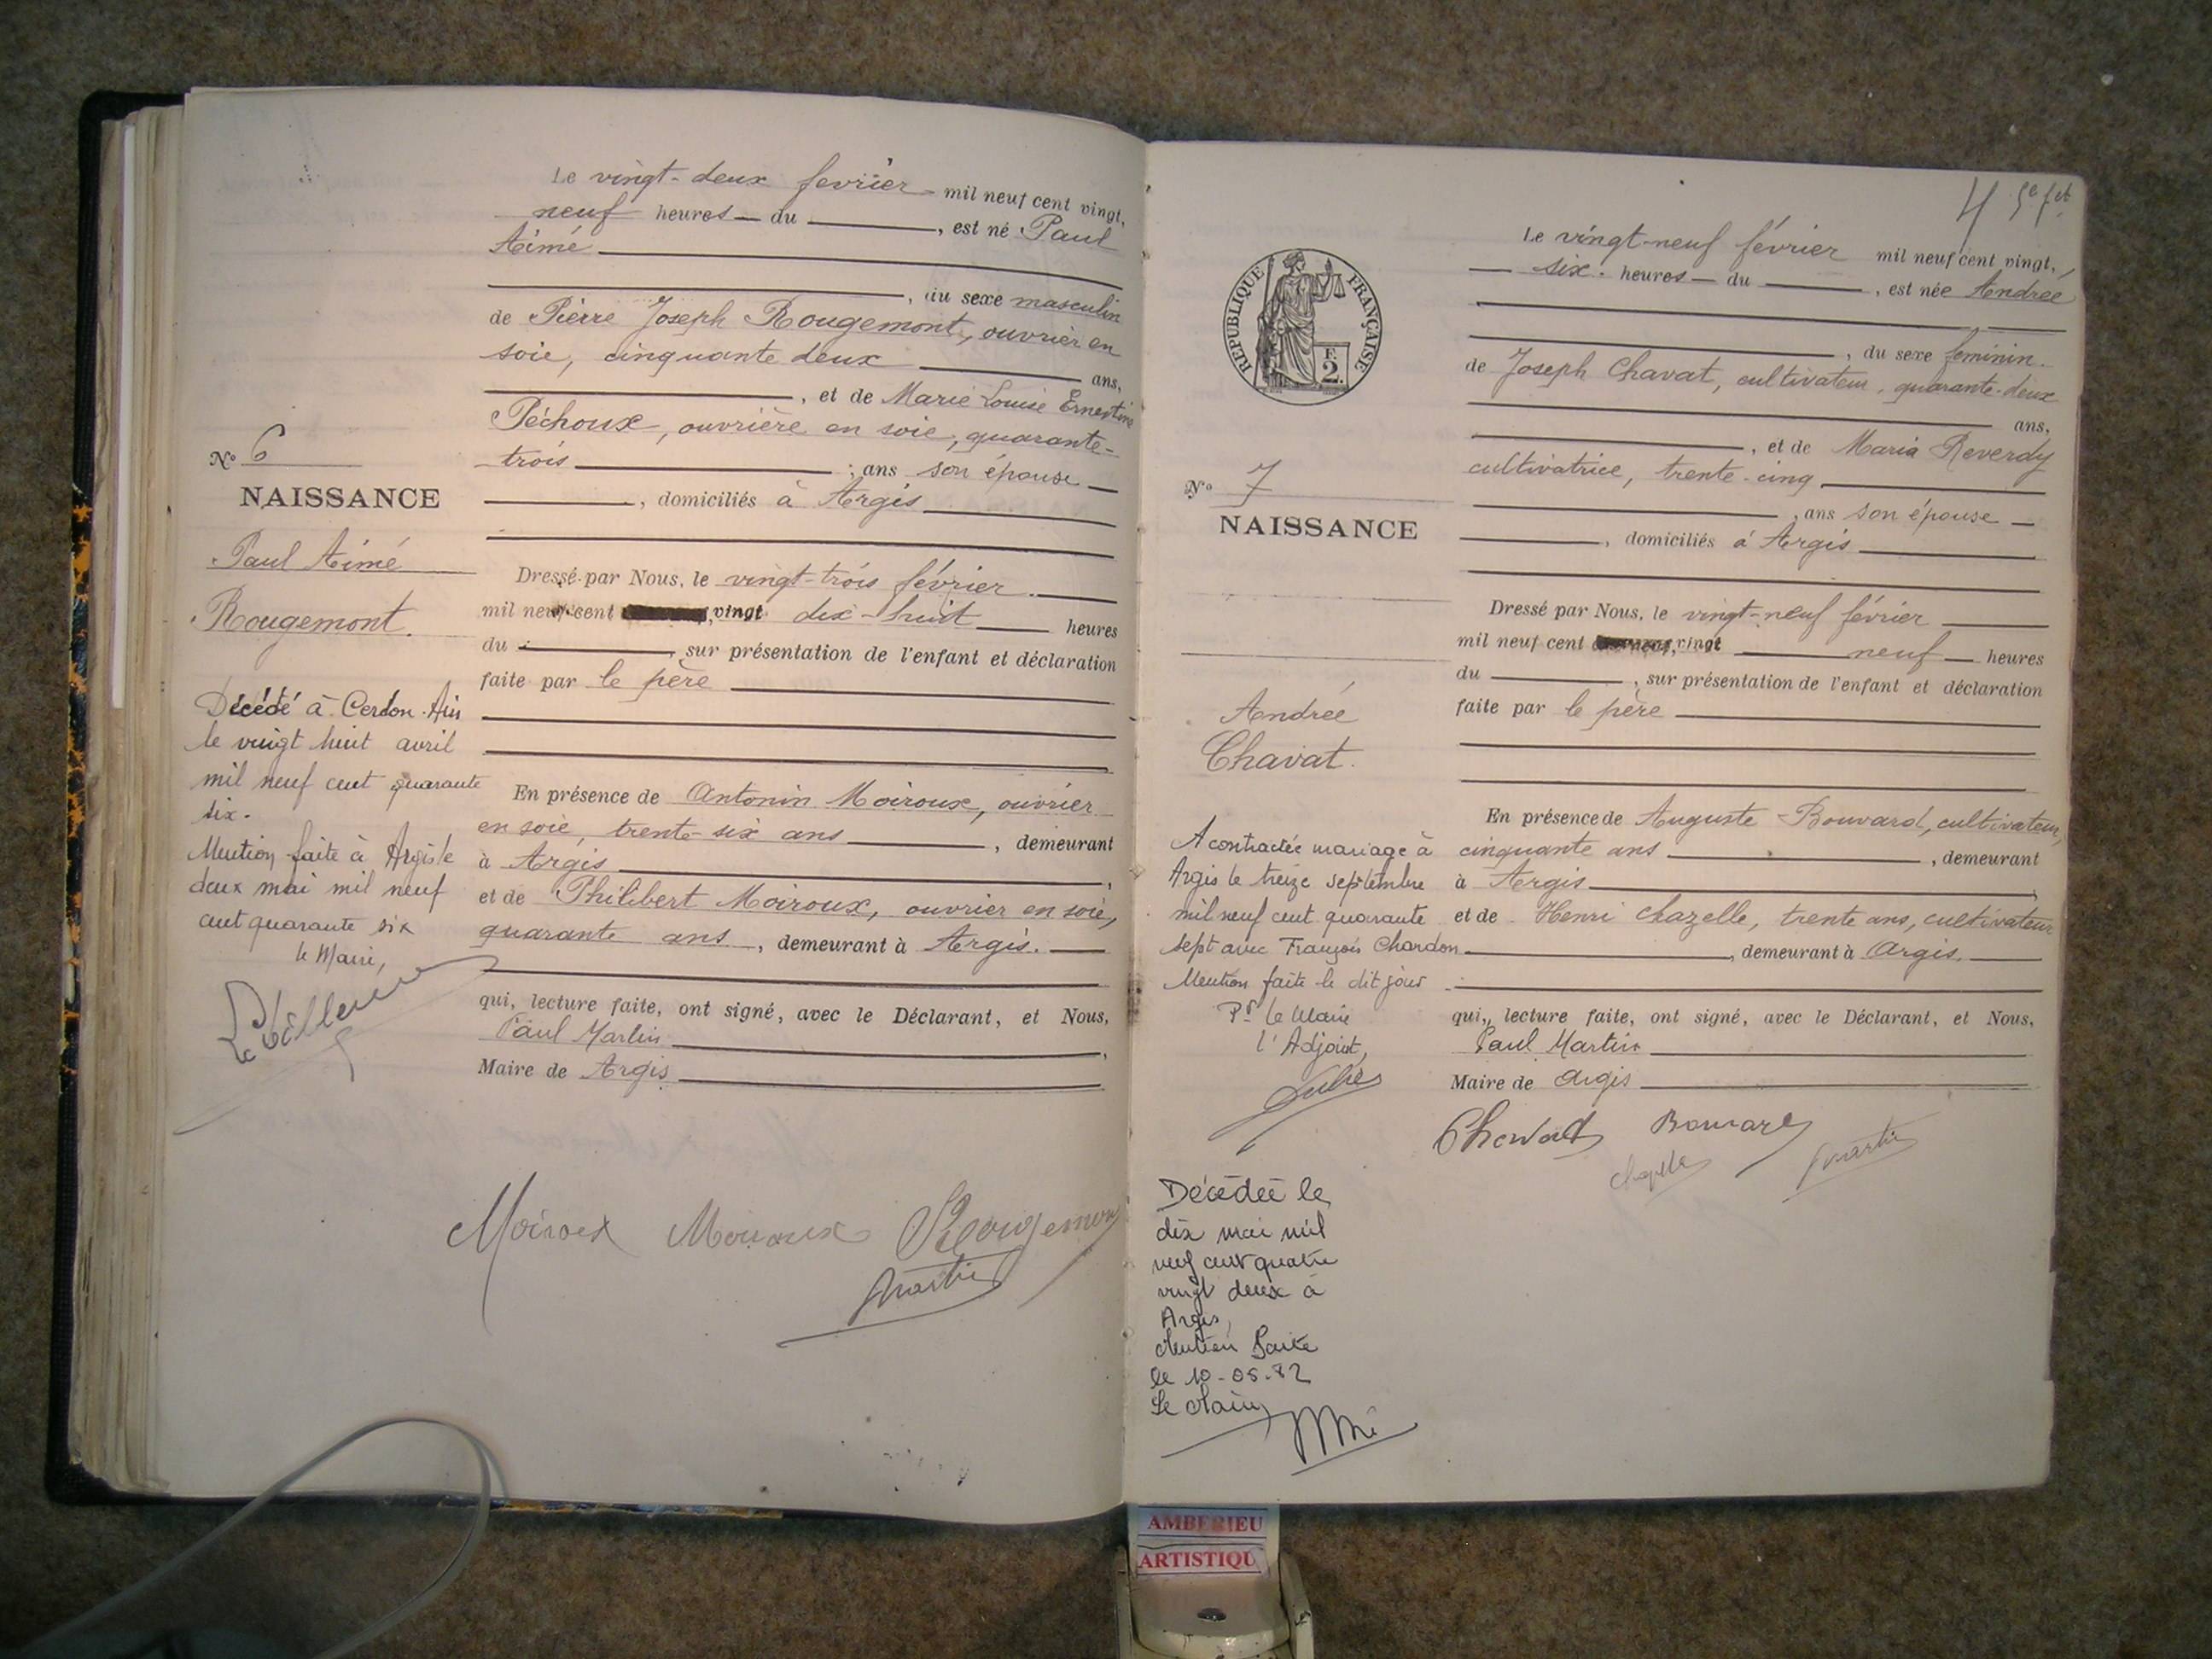 Le vingt-deux fevrier mil neuf cent vingt,
neuf heures du , est né Paul
Aimé
, du sexe masculin
de Pierre Joseph Rougemont, ouvrier en
soie, cinquante deux ans,
, et de Marie Louise Ernestine
Péchoux, ouvrière en soie, quarante-
trois , ans son épouse
, domiciliés à Argis
Nº 6
NAISSANCE
Paul Aimé
Rougemont.
Dressé par Nous, le vingt-trois février
mil neuf cent , vingt dix-huit heures
du , sur présentation de l'enfant et déclaration
faite par le père
En présence de Antonin Moiroux, ouvrier
en soie, trente-six ans , demeurant
à Argis ,
et de Philibert Moiroux, ouvrier en soie,
quarante ans , demeurant à Argis.
qui, lecture faite, ont signé, avec le Déclarant, et Nous,
Paul Martin ,
Maire de Argis
Décédé à Cerdon Ain
le vingt huit avril
mil neuf cent quarante
six.
Mention faite à Argis le
deux mai mil neuf
cent quarante six
le Maire,
Moiroux Moiroux Rougemont
Martin
4
Le vingt-neuf février mil neuf cent vingt,
six heures du , est née Andrée
, du sexe feminin
de Joseph Chavat, cultivateur, quarante-deux
ans,
, et de Maria Reverdy
cultivatrice, trente-cinq
, ans son épouse
, domiciliés à Argis
RÉPUBLIQUE FRANÇAISE
F.
2.
Nº 7
NAISSANCE
Andrée
Chavat.
Dressé par Nous, le vingt-neuf février
mil neuf cent , vingt neuf heures
du , sur présentation de l'enfant et déclaration
faite par le père
En présence de Auguste Bouvard, cultivateur,
cinquante ans , demeurant
à Argis ,
et de Henri Chazelle, trente ans, cultivateur
, demeurant à Argis.
qui, lecture faite, ont signé, avec le Déclarant, et Nous,
Paul Martin
Maire de Argis
Chavat Bouvard
Chazelle Martin
A contractée mariage à
Argis le treize septembre
mil neuf cent quarante
sept avec François Chardon
Mention faite le dit jour
Pr le Maire
l'Adjoint,
Décédée le
dix mai mil
neuf cent quatre
vingt deux à
Argis,
Mention faite
le 10-05-82
Le Maire
AMBERIEU
ARTISTIQU